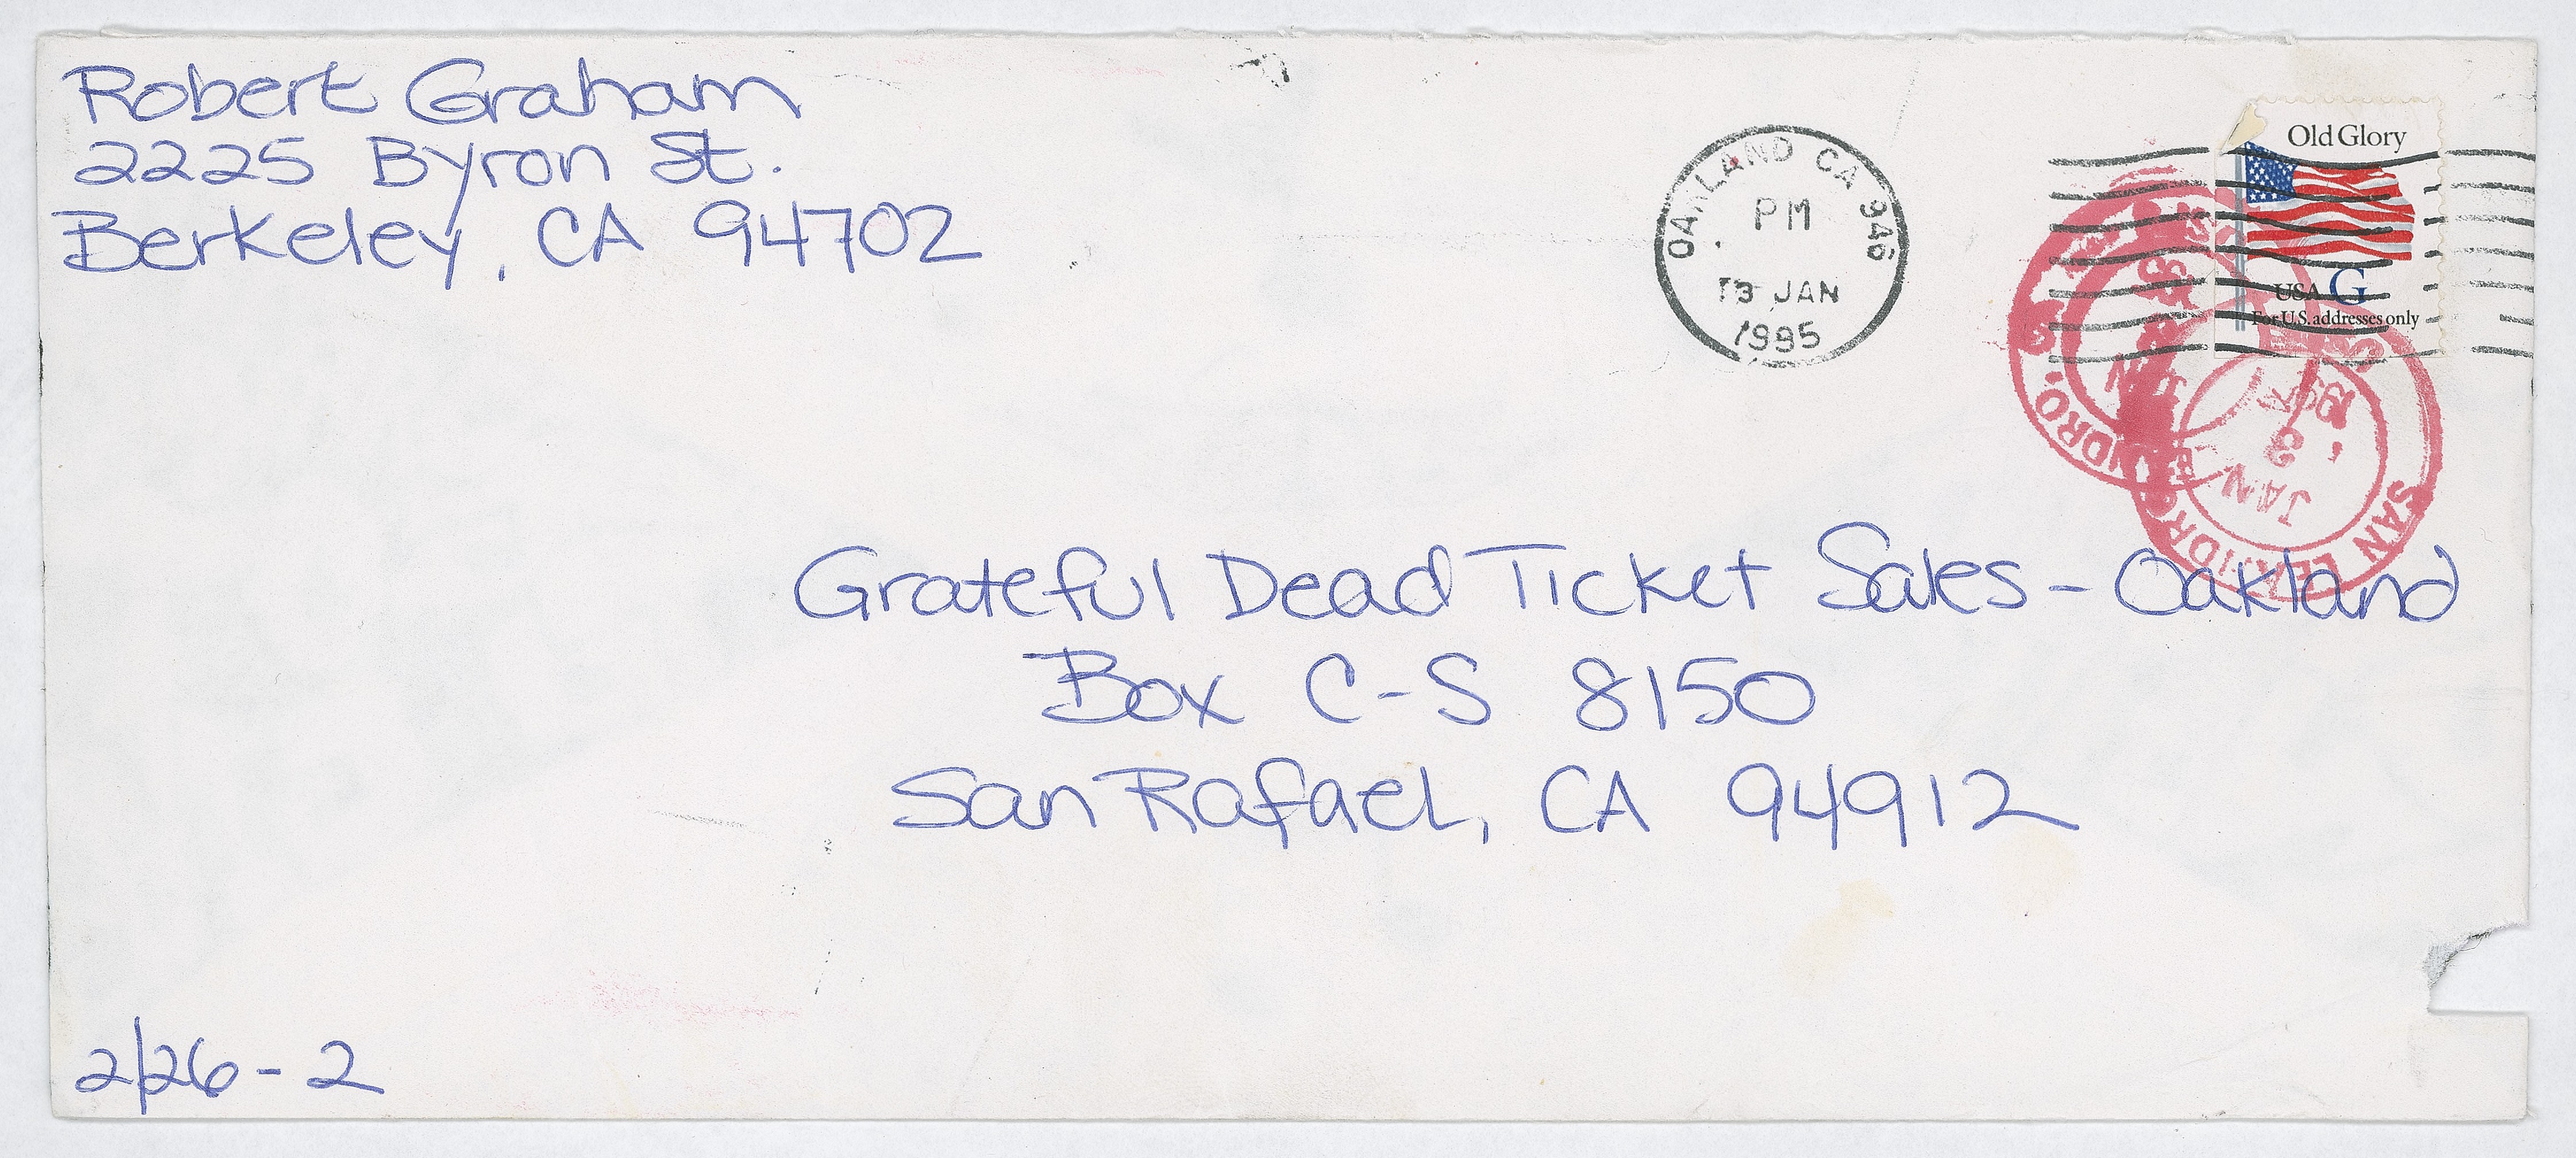 Robert Graham
2225 Byron St.
Berkeley, CA 94702
OAKLAND CA 946
PM
13 JAN
1995
Old Glory
USA G
For U.S. addresses only
SAN LEANDRO
JAN
1995
Grateful Dead Ticket Sales - Oakland
Box C-S 8150
San Rafael, CA 94912
2/26 - 2